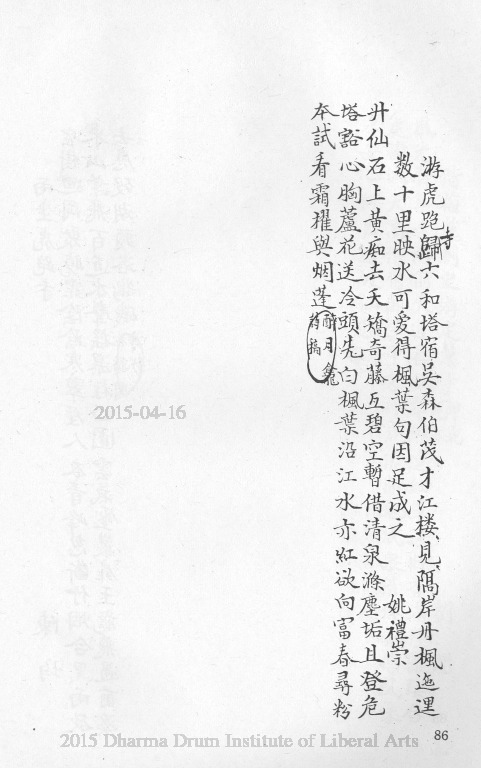 游虎跑歸寺六和塔宿吳森伯茂才江楼見隔岸丹楓迤逦
数十里映水可愛得楓葉句因足成之 姚禮崇
廾仙石上黄痴去夭矯奇藤亙碧空暫借清泉滌塵垢且登危
塔豁心胸蘆花送冷頭先白楓葉沿江水亦紅欲向富春尋粉
夲試看霜櫂與烟蓬
醉月
2015-04-16
86
2015 Dharma Drum Institute of Liberal Arts